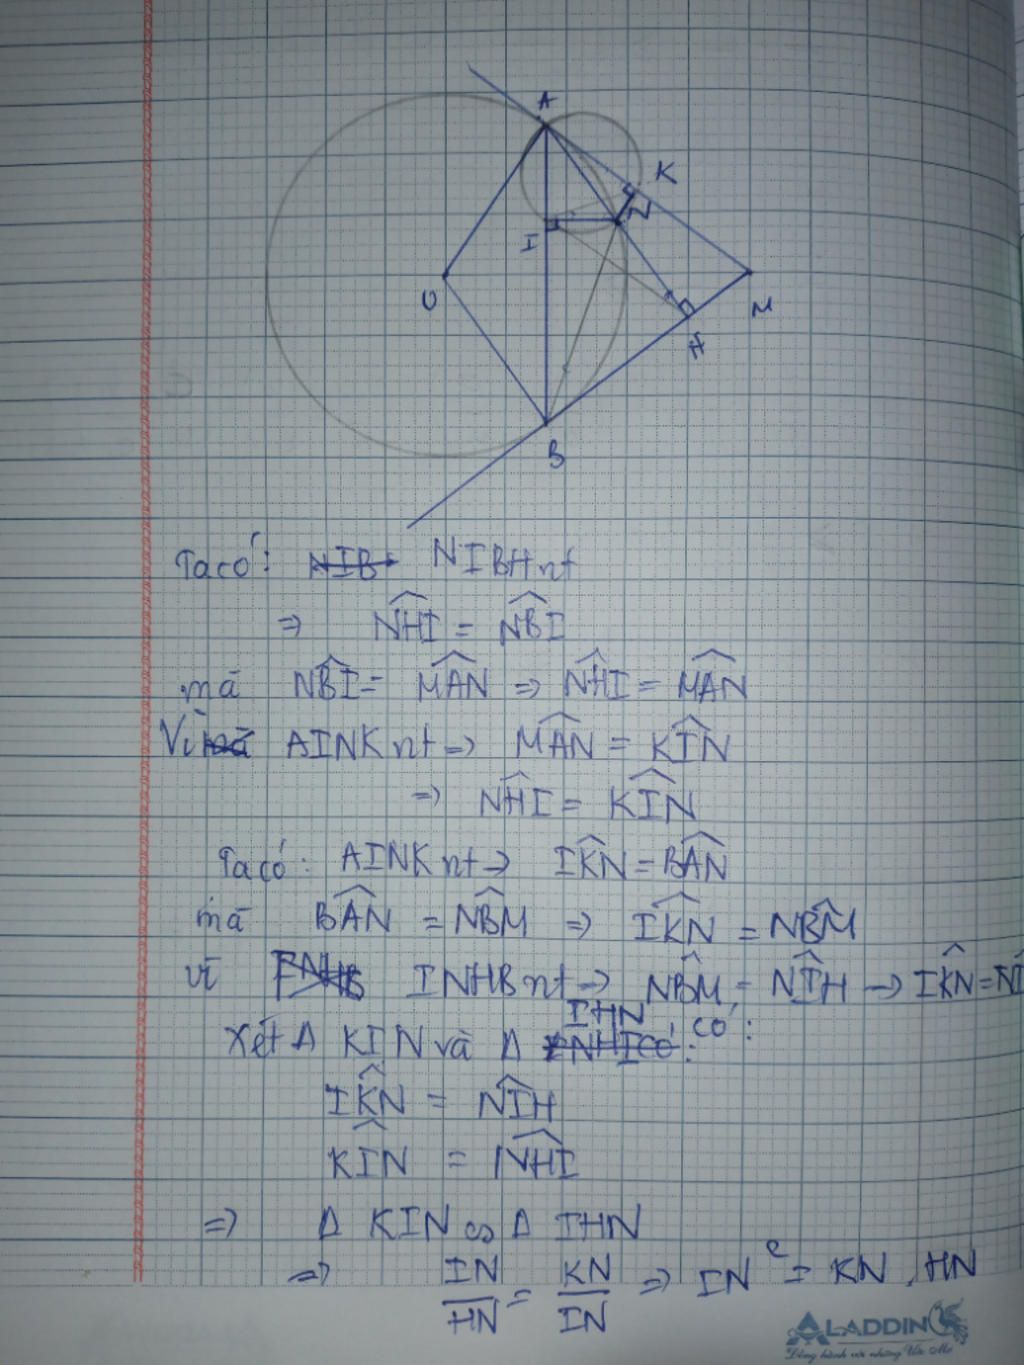 A
K
N
I
O
M
H
B
Ta có: NIB NIBH nt
⇒ \widehat{NHI} = \widehat{NBI}
mà \widehat{NBI} = \widehat{MAN} ⇒ \widehat{NHI} = \widehat{MAN}
Vì mà AINK nt ⇒ \widehat{MAN} = \widehat{KIN}
⇒ \widehat{NHI} = \widehat{KIN}
Ta có: AINK nt ⇒ \widehat{IKN} = \widehat{BAN}
mà \widehat{BAN} = \widehat{NBM} ⇒ \widehat{IKN} = \widehat{NBM}
vì INHB nt ⇒ \widehat{NBM} = \widehat{NIH} → \widehat{IKN} = \widehat{NI
Xét Δ KIN và Δ IHN có:
\widehat{IKN} = \widehat{NIH}
\widehat{KIN} = \widehat{NHI}
⇒ Δ KIN ∽ Δ IHN
⇒ IN/HN = KN/IN ⇒ IN² = KN . HN
ALADDIN
Đồng hành với những Ước Mơ